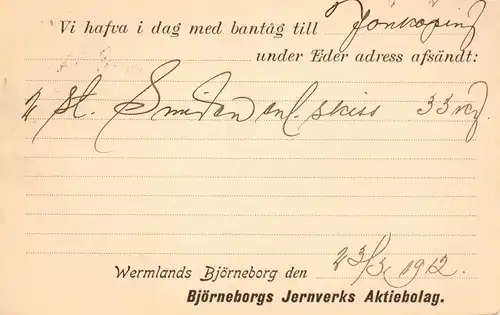 Vi hafva i dag med bantåg till Jönköping
under Eder adress afsändt:
2 st. Smiden enl. skiss 33 kg
Wermlands Björneborg den 23/3 1912.
Björneborgs Jernverks Aktiebolag.